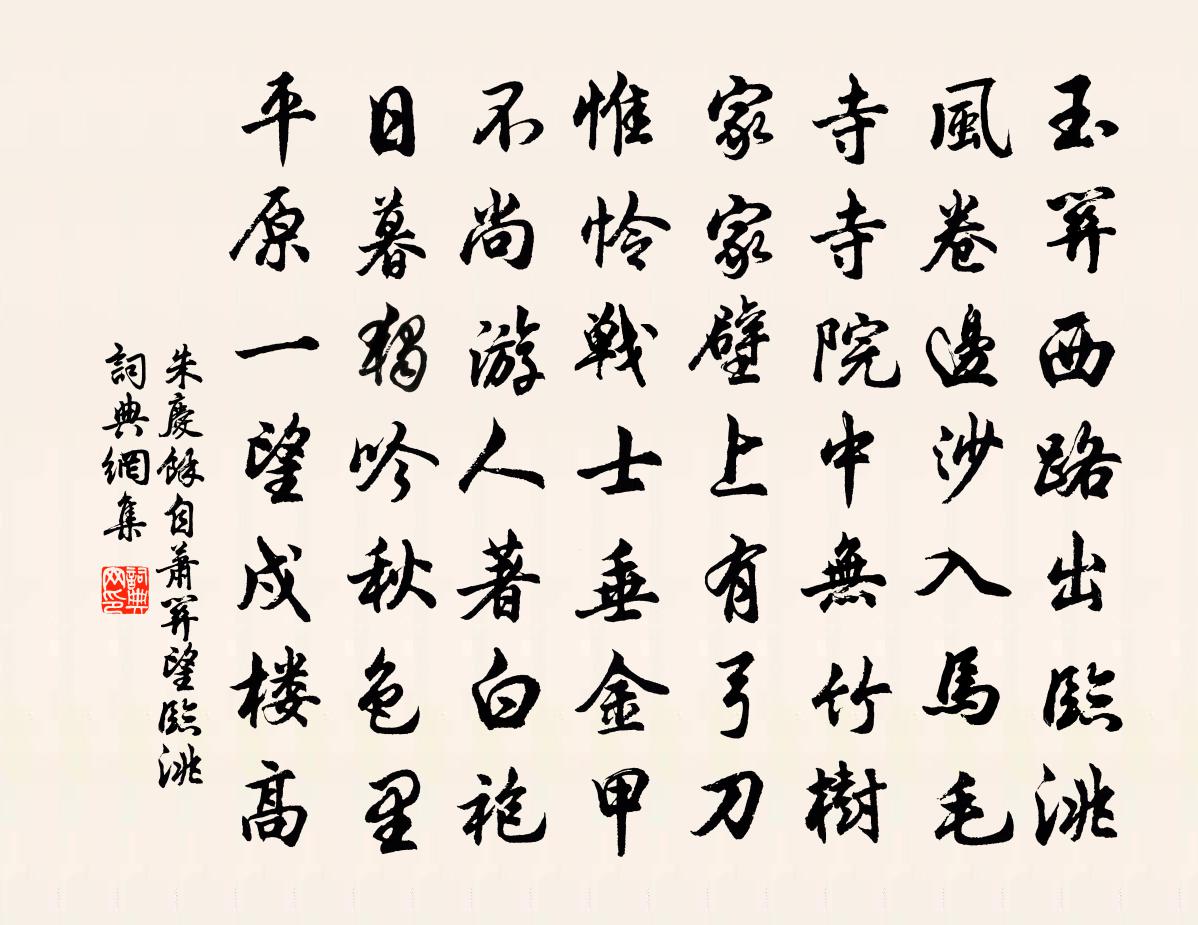 玉關西路出臨洮
風卷邊沙入馬毛
寺寺院中無竹樹
家家壁上有弓刀
惟憐戰士垂金甲
不尚游人著白袍
日暮獨吟秋色里
平原一望戍楼高
朱慶餘自蕭關望臨洮
詞典網集
詞典网印